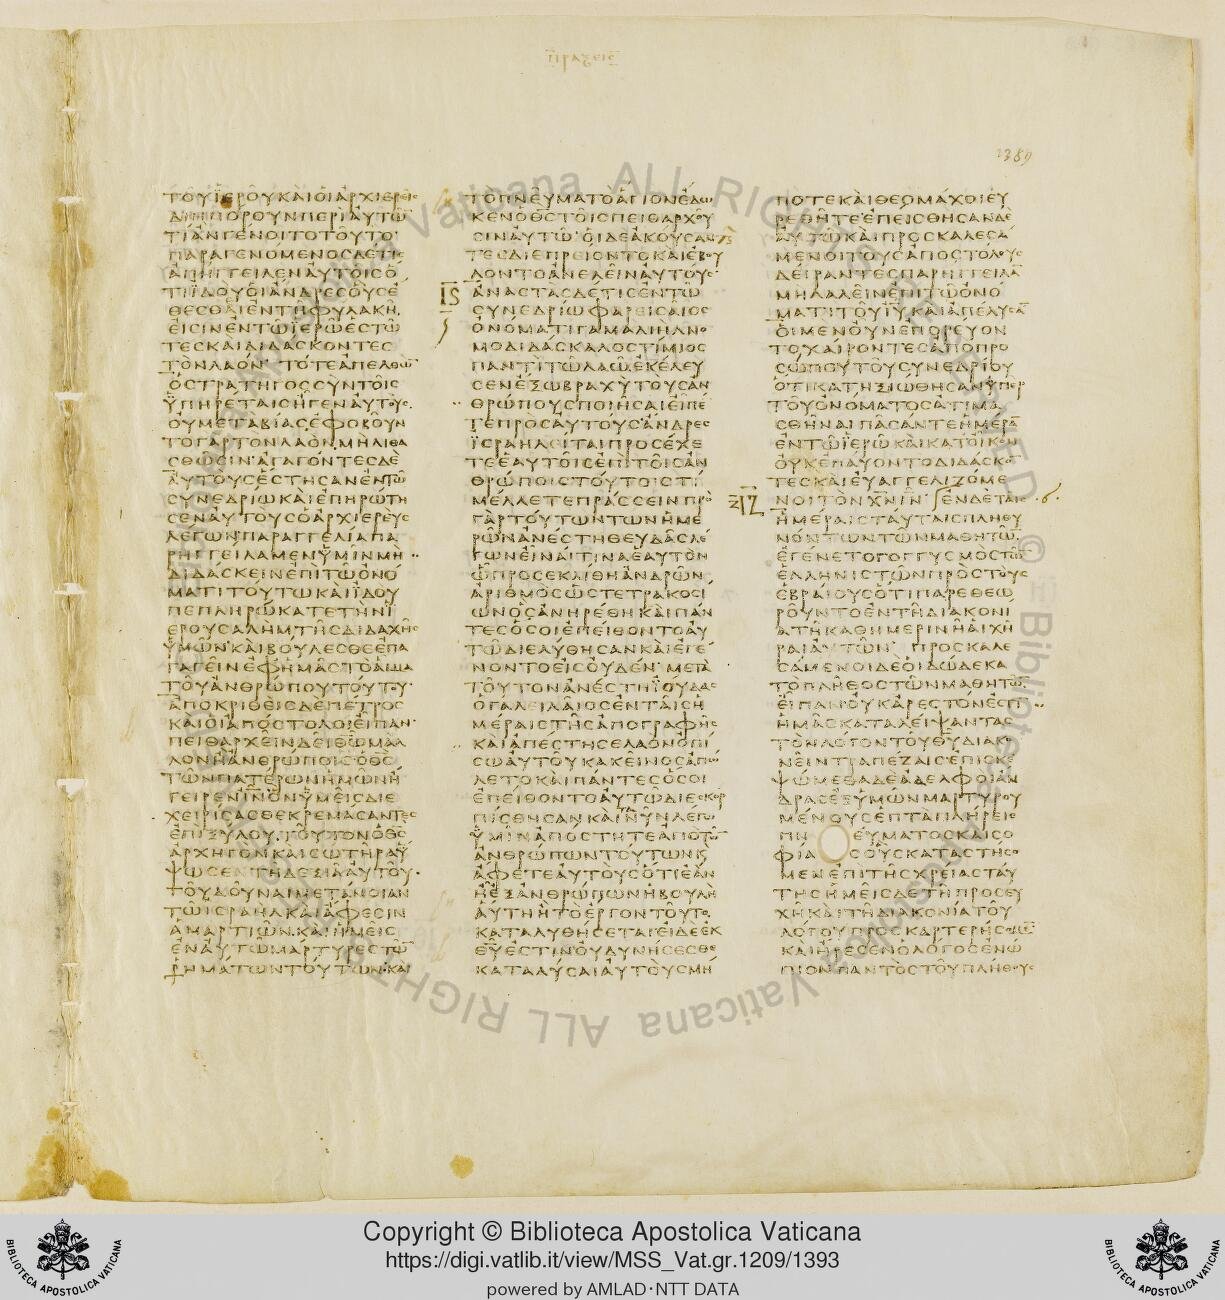 πραξεις
1389
ΤΟΥΙΕΡΟΥΚΑΙΟΙΑΡΧΙΕΡΕΙϹ
ΔΙΗΠΟΡΟΥΝΠΕΡΙΑΥΤΩ̅
ΤΙΑΝΓΕΝΟΙΤΟΤΟΥΤΟ
ΠΑΡΑΓΕΝΟΜΕΝΟϹΔΕΤΙϹ
ΑΠΗΓΓΕΙΛΕΝΑΥΤΟΙϹΟ
ΤΙΙΔΟΥΟΙΑΝΔΡΕϹΟΥϹΕ
ΘΕϹΘΑΙΕΝΤΗΦΥΛΑΚΗ
ΕΙϹΙΝΕΝΤΩΙΕΡΩΕϹΤΩ
ΤΕϹΚΑΙΔΙΔΑϹΚΟΝΤΕϹ
ΤΟΝΛΑΟΝ ΤΟΤΕΑΠΕΛΘΩ̅
ΟϹΤΡΑΤΗΓΟϹϹΥΝΤΟΙϹ
ΥΠΗΡΕΤΑΙϹΗΓΕΝΑΥΤΟΥϹ
ΟΥΜΕΤΑΒΙΑϹΕΦΟΒΟΥΝ
ΤΟΓΑΡΤΟΝΛΑΟΝΜΗΛΙΘΑ
ϹΘΩϹΙΝΑΓΑΓΟΝΤΕϹΔΕ
ΑΥΤΟΥϹΕϹΤΗϹΑΝΕΝΤΩ
ϹΥΝΕΔΡΙΩΚΑΙΕΠΗΡΩΤΗ
ϹΕΝΑΥΤΟΥϹΟΑΡΧΙΕΡΕΥϹ
ΛΕΓΩΝΠΑΡΑΓΓΕΛΙΑΠΑ
ΡΗΓΓΕΙΛΑΜΕΝΥΜΙΝΜΗ
ΔΙΔΑϹΚΕΙΝΕΠΙΤΩΟΝΟ
ΜΑΤΙΤΟΥΤΩΚΑΙΙΔΟΥ
ΠΕΠΛΗΡΩΚΑΤΕΤΗΝΙ
ΕΡΟΥϹΑΛΗΜΤΗϹΔΙΔΑΧΗϹ
ΥΜΩΝΚΑΙΒΟΥΛΕϹΘΕΕΠΑ
ΓΑΓΕΙΝΕΦΗΜΑϹΤΟΑΙΜΑ
ΤΟΥΑΝΘΡΩΠΟΥΤΟΥΤΟΥ
ΑΠΟΚΡΙΘΕΙϹΔΕΠΕΤΡΟϹ
ΚΑΙΟΙΑΠΟϹΤΟΛΟΙΕΙΠΑΝ
ΠΕΙΘΑΡΧΕΙΝΔΕΙΘΩ̅ΜΑΛ
ΛΟΝΗΑΝΘΡΩΠΟΙϹΟΘϹ̅
ΤΩΝΠΑΤΕΡΩΝΗΜΩΝΗ
ΓΕΙΡΕΝΙΝ̅ΟΝΥΜΕΙϹΔΙΕ
ΧΕΙΡΙϹΑϹΘΕΚΡΕΜΑϹΑΝΤΕϹ
ΕΠΙΞΥΛΟΥΤΟΥΤΟΝΟΘϹ̅
ΑΡΧΗΓΟΝΚΑΙϹΩΤΗΡΑΥ
ΨΩϹΕΝΤΗΔΕΞΙΑΑΥΤΟΥ
ΤΟΥΔΟΥΝΑΙΜΕΤΑΝΟΙΑΝ
ΤΩΙϹΡΑΗΛΚΑΙΑΦΕϹΙΝ
ΑΜΑΡΤΙΩΝΚΑΙΗΜΕΙϹ
ΕΝΑΥΤΩΜΑΡΤΥΡΕϹΤΩ̅
ΡΗΜΑΤΩΝΤΟΥΤΩΝΚΑΙ
ΤΟΠΝΕΥΜΑΤΟΑΓΙΟΝΕΔΩ
ΚΕΝΟΘϹ̅ΤΟΙϹΠΕΙΘΑΡΧΟΥ
ϹΙΝΑΥΤΩΟΙΔΕΑΚΟΥϹΑΝ
ΤΕϹΔΙΕΠΡΕΙΟΝΤΟΚΑΙΕΒΟΥ
ΛΟΝΤΟΑΝΕΛΕΙΝΑΥΤΟΥϹ
ΙϚ
ΑΝΑϹΤΑϹΔΕΤΙϹΕΝΤΩ
ϹΥΝΕΔΡΙΩΦΑΡΕΙϹΑΙΟϹ
ΟΝΟΜΑΤΙΓΑΜΑΛΙΗΛΝΟ
ΜΟΔΙΔΑϹΚΑΛΟϹΤΙΜΙΟϹ
ΠΑΝΤΙΤΩΛΑΩΕΚΕΛΕΥ
ϹΕΝΕΞΩΒΡΑΧΥΤΟΥϹΑΝ
ΘΡΩΠΟΥϹΠΟΙΗϹΑΙΕΙΠΕ
ΤΕΠΡΟϹΑΥΤΟΥϹΑΝΔΡΕϹ
ΙϹΡΑΗΛΕΙΤΑΙΠΡΟϹΕΧΕ
ΤΕΕΑΥΤΟΙϹΕΠΙΤΟΙϹΑΝ
ΘΡΩΠΟΙϹΤΟΥΤΟΙϹΤΙ
ΜΕΛΛΕΤΕΠΡΑϹϹΕΙΝΠΡΟ
ΓΑΡΤΟΥΤΩΝΤΩΝΗΜΕ
ΡΩΝΑΝΕϹΤΗΘΕΥΔΑϹΛΕ
ΓΩΝΕΙΝΑΙΤΙΝΑΕΑΥΤΟΝ
ΩΠΡΟϹΕΚΛΙΘΗΑΝΔΡΩΝ
ΑΡΙΘΜΟϹΩϹΤΕΤΡΑΚΟϹΙ
ΩΝΟϹΑΝΗΡΕΘΗΚΑΙΠΑΝ
ΤΕϹΟϹΟΙΕΠΕΙΘΟΝΤΟΑΥ
ΤΩΔΙΕΛΥΘΗϹΑΝΚΑΙΕΓΕ
ΝΟΝΤΟΕΙϹΟΥΔΕΝΜΕΤΑ
ΤΟΥΤΟΝΑΝΕϹΤΗΙΟΥΔΑϹ
ΟΓΑΛΕΙΛΑΙΟϹΕΝΤΑΙϹΗ
ΜΕΡΑΙϹΤΗϹΑΠΟΓΡΑΦΗϹ
ΚΑΙΑΠΕϹΤΗϹΕΛΑΟΝΟΠΙ
ϹΩΑΥΤΟΥΚΑΚΕΙΝΟϹΑΠΩ
ΛΕΤΟΚΑΙΠΑΝΤΕϹΟϹΟΙ
ΕΠΕΙΘΟΝΤΟΑΥΤΩΔΙΕϹΚΟΡ
ΠΙϹΘΗϹΑΝΚΑΙΝΥΝΛΕΓΩ
ΥΜΙΝΑΠΟϹΤΗΤΕΑΠΟΤΩ̅
ΑΝΘΡΩΠΩΝΤΟΥΤΩΝΚ
ΑΦΕΤΕΑΥΤΟΥϹΟΤΙΕΑΝ
ΗΕΞΑΝΘΡΩΠΩΝΗΒΟΥΛΗ
ΑΥΤΗΗΤΟΕΡΓΟΝΤΟΥΤΟ
ΚΑΤΑΛΥΘΗϹΕΤΑΙΕΙΔΕΕΚ
ΘΥ̅ΕϹΤΙΝΟΥΔΥΝΗϹΕϹΘΕ
ΚΑΤΑΛΥϹΑΙΑΥΤΟΥϹΜΗ
ΠΟΤΕΚΑΙΘΕΟΜΑΧΟΙΕΥ
ΡΕΘΗΤΕΕΠΕΙϹΘΗϹΑΝΔΕ
ΑΥΤΩΚΑΙΠΡΟϹΚΑΛΕϹΑ
ΜΕΝΟΙΤΟΥϹΑΠΟϹΤΟΛΟΥϹ
ΔΕΙΡΑΝΤΕϹΠΑΡΗΓΓΕΙΛΑ̅
ΜΗΛΑΛΕΙΝΕΠΙΤΩΟΝΟ
ΜΑΤΙΤΟΥΙΥ̅ΚΑΙΑΠΕΛΥϹΑ̅
ΟΙΜΕΝΟΥΝΕΠΟΡΕΥΟΝ
ΤΟΧΑΙΡΟΝΤΕϹΑΠΟΠΡΟ
ϹΩΠΟΥΤΟΥϹΥΝΕΔΡΙΟΥ
ΟΤΙΚΑΤΗΞΙΩΘΗϹΑΝΥΠΕΡ
ΤΟΥΟΝΟΜΑΤΟϹΑΤΙΜΑ
ϹΘΗΝΑΙΠΑϹΑΝΤΕΗΜΕΡΑ̅
ΕΝΤΩΙΕΡΩΚΑΙΚΑΤΟΙΚΟΝ
ΟΥΚΕΠΑΥΟΝΤΟΔΙΔΑϹΚΟ̅
ΤΕϹΚΑΙΕΥΑΓΓΕΛΙΖΟΜΕ
ΙΖ
ΝΟΙΤΟΝΧΝ̅ΙΝ̅ ΕΝΔΕΤΑΙϹ
ΗΜΕΡΑΙϹΤΑΥΤΑΙϹΠΛΗΘΥ
ΝΟΝΤΩΝΤΩΝΜΑΘΗΤΩ̅
ΕΓΕΝΕΤΟΓΟΓΓΥϹΜΟϹΤΩ̅
ΕΛΛΗΝΙϹΤΩΝΠΡΟϹΤΟΥϹ
ΕΒΡΑΙΟΥϹΟΤΙΠΑΡΕΘΕΩ
ΡΟΥΝΤΟΕΝΤΗΔΙΑΚΟΝΙ
ΑΤΗΚΑΘΗΜΕΡΙΝΗΑΙΧΗ
ΡΑΙΑΥΤΩΝ ΠΡΟϹΚΑΛΕ
ϹΑΜΕΝΟΙΔΕΟΙΔΩΔΕΚΑ
ΤΟΠΛΗΘΟϹΤΩΝΜΑΘΗΤΩ̅
ΕΙΠΑΝΟΥΚΑΡΕϹΤΟΝΕϹΤΙ
ΗΜΑϹΚΑΤΑΛΕΙΨΑΝΤΑϹ
ΤΟΝΛΟΓΟΝΤΟΥΘΥ̅ΔΙΑΚΟ
ΝΕΙΝΤΡΑΠΕΖΑΙϹΕΠΙϹΚΕ
ΨΩΜΕΘΑΔΕΑΔΕΛΦΟΙΑΝ
ΔΡΑϹΕΞΥΜΩΝΜΑΡΤΥΡΟΥ
ΜΕΝΟΥϹΕΠΤΑΠΛΗΡΕΙϹ
ΠΝ ΕΥΜΑΤΟϹΚΑΙϹΟ
ΦΙΑϹΟΥϹΚΑΤΑϹΤΗϹΟ
ΜΕΝΕΠΙΤΗϹΧΡΕΙΑϹΤΑΥ
ΤΗϹΗΜΕΙϹΔΕΤΗΠΡΟϹΕΥ
ΧΗΚΑΙΤΗΔΙΑΚΟΝΙΑΤΟΥ
ΛΟΓΟΥΠΡΟϹΚΑΡΤΕΡΗϹΟΜΕ̅
ΚΑΙΗΡΕϹΕΝΟΛΟΓΟϹΕΝΩ
ΠΙΟΝΠΑΝΤΟϹΤΟΥΠΛΗΘΟΥϹ
Copyright © Biblioteca Apostolica Vaticana
https://digi.vatlib.it/view/MSS_Vat.gr.1209/1393
powered by AMLAD·NTT DATA
BIBLIOTECA APOSTOLICA VATICANA
BIBLIOTECA APOSTOLICA VATICANA